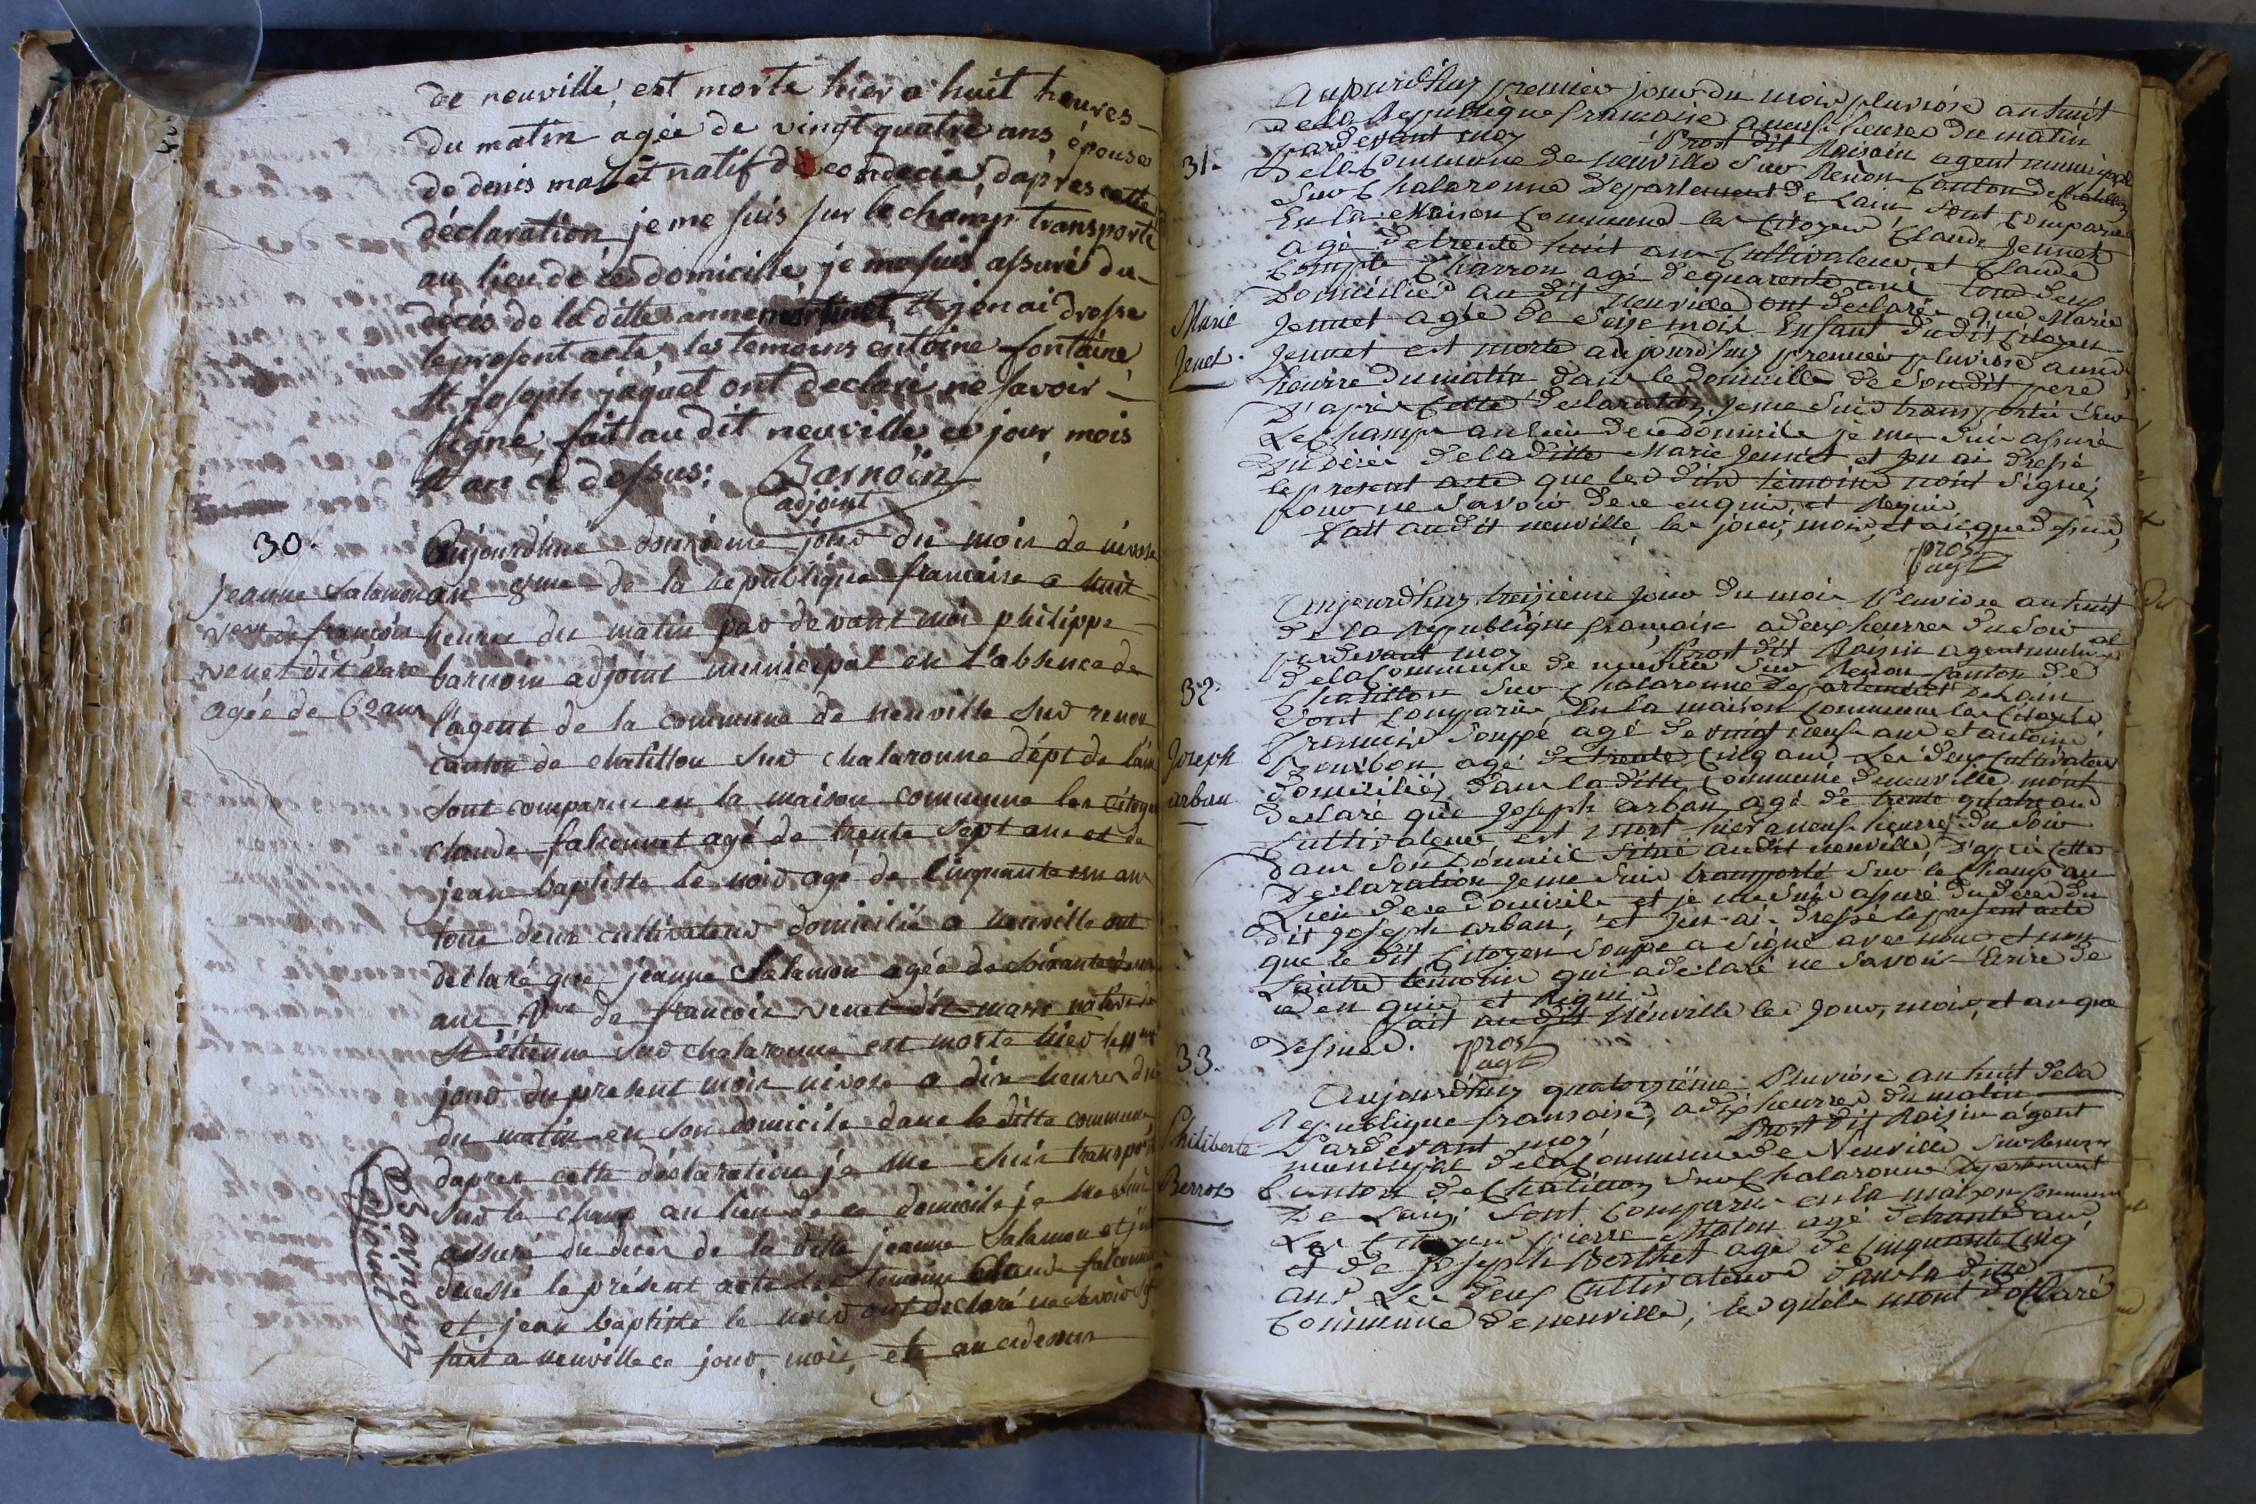 de neuville, est morte hier a huit heures
du matin agée de vingt quatre ans, épouse
de denis mazet natif de condecia, d'aprés cette
déclaration, je me suis sur le champ transporté
au lieu de ce domicille, je me suis assuré du
décés de la ditte anne martinet et j'en ai dressé
le present acte, les temoins entoine fontaine
et joseph jaquet ont declaré ne savoir
signé, fait au dit neuville ce jour mois
et an ci dessus: Barnoin
adjoint
30.
jeanne salamon
veuve de françois
venet dit mare
agée de 62 ans
Aujourd'hui douzieme jour du mois de nivose
an 8me de la république francaise a huit
heures du matin par devant moi philippe
barnoin adjoint municipal en l'absence de
l'agent de la commune de neuville sur renon
canton de chatillon sur chalaronne dépt de l'ain
sont comparus en la maison commune les citoyens
claude falconnet agé de trente sept ans et de
jean baptiste le noir agé de cinquante un ans
tous deux cultivateurs domicilié a neuville ont
déclaré que jeanne Salamon agée de soixante deux
ans, Vve de francois venet dit mare native de
St étienne sur chalaronne est morte hier le 11me
jour du présent mois nivose a dix heures du
du matin en son domicile dans la ditte commune
daprès cette déclaration je me suis transporté
sur le champ au lieu de ce domicile je me suis
assuré du decès de la ditte jeanne Salamon et j'ai
dressé le présent acte les temoins Claude falconnet
et jean baptiste le noir ont declaré ne savoir signé
fait a neuville ce jour, mois, et an cidessus
Barnoin
adjoint
31.
Marie
Jenet.
Aujourd'huy premier jour du mois pluviose an huit
de la République francaise a neuf heures du matin
pardevant moy Prost dit Raisain agent municipal
de la Commune de neuville Sur Renon Canton de Chatillon
Sur Chalaronne Departement de Lain Sont Comparus
En la Maison Commune les Citoyens Claude Jennet
agé de trente huit ans Cultivateur, et Claude
Compte Charron agé de quarente ans tous deux
Domiciliés au dit neuville ont declaré que Marie
Jennet agée de Seize mois Enfant du dit Citoyen
Jennet est morte aujourd'huy premier pluviose a une
heurre du matin dans le domicille de Son dit pere
D'après Cette declaration, Je me Suis transportée Sur
Le Champ au lieu de ce domicile je me Suis assuré
Du Décès de la ditte Marie Jennet et Jen ai dressé
le present acte que les dits témoins nont Signés
pour ne Savoir de ce enquis, et Requis
Fait au dit neuville, les jour, mois, et an que dessus,
pros
agt
32.
Joseph
arban
Aujourd'huy treizième Jour du mois Pluviose an huit
de la République française a deux heurres du Soir
pardevant moy Prost dit Raisin agent municipal
de la Commune de neuville Sur Renon Canton de
Chatillon Sur Chalaronne Departement de Lain
Sont Comparus En la maison Commune les Citoyens
Souppé agé de vingt neuf ans et antoine
Bourbon agé de trente Cinq ans Les deux Cultivateurs
domiciliés dans la ditte Commune de neuville mont
declaré que Joseph arban agé de trente quatre ans
Cultivateur, est mort hier a neuf heurres du Soir
dans Son Domicil Situé au dit neuville, D'après Cette
Déclaration Je me Suis transporté Sur le Champ au
Lieu de ce domicile et je me Suis assuré du decès du
dit Joseph arban, et Jen ai dressé le present acte
que le dit Citoyen Souppé a Signé avec nous et non
Lautre témoin qui a declaré ne Savoir Ecrire de
ce en quis et Requis
Fait au dit Neuville les Jour, mois, et an que
Dessus. pros
agt
33.
Philiberte
Berrod
Aujourd'huy quatorzième Pluviose an huit de la
République fransaise, a dix heurres du matin
Pardevant moy Prost dit Raisin agent
municipal de la Commune de Neuville Sur Renon
Canton de Chatillon Sur Chalaronne Departement
De Lain, Sont Comparus en la maison Commune
Les Citoyens Pierre Maton agé de trente ans
et de Joseph Berthet agé de Cinquante Cinq
ans Les deux Cultivateurs dans la ditte
Commune de neuville, les quels mont declaré